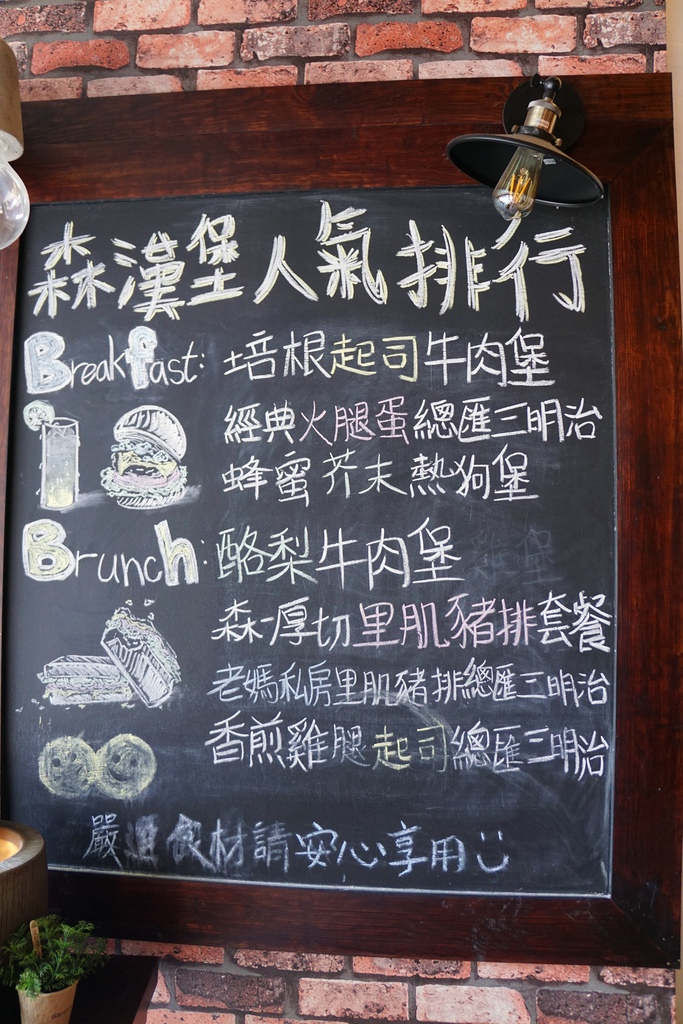 森漢堡人氣排行
Breakfast: 培根起司牛肉堡
經典火腿蛋總匯三明治
蜂蜜芥末熱狗堡
Brunch: 酪梨牛肉堡
森-厚切里肌豬排套餐
老媽私房里肌豬排總匯三明治
香煎雞腿起司總匯三明治
嚴選食材請安心享用